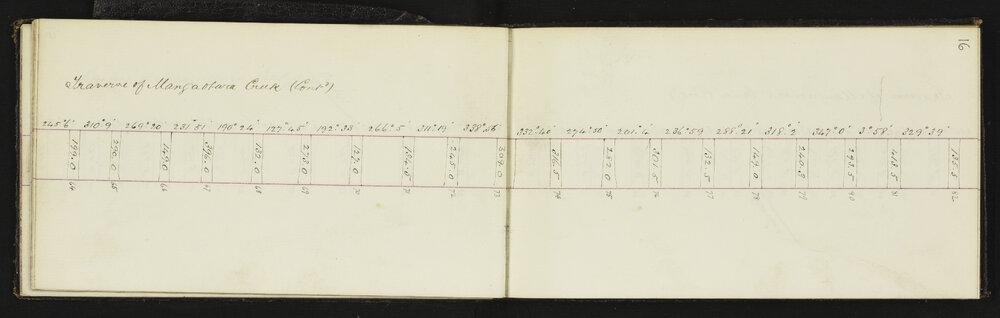 16
Traverse of Mangaohara Creek (Cont'd)
245°6' 310°9' 269°20' 231°51' 190°24' 127°45' 192°38' 266°5' 311°19' 338°36' 332°40' 274°50' 201°4' 236°59' 288°21' 318°2' 347°0' 3°58' 329°39'
199.0 290.0 149.0 396.0 132.0 273.0 127.0 184.5 245.0 309.0 316.5 232.0 301.5 132.5 149.0 240.8 293.5 418.5 135.5
64 65 66 67 68 69 70 71 72 73 74 75 76 77 78 79 80 81 82